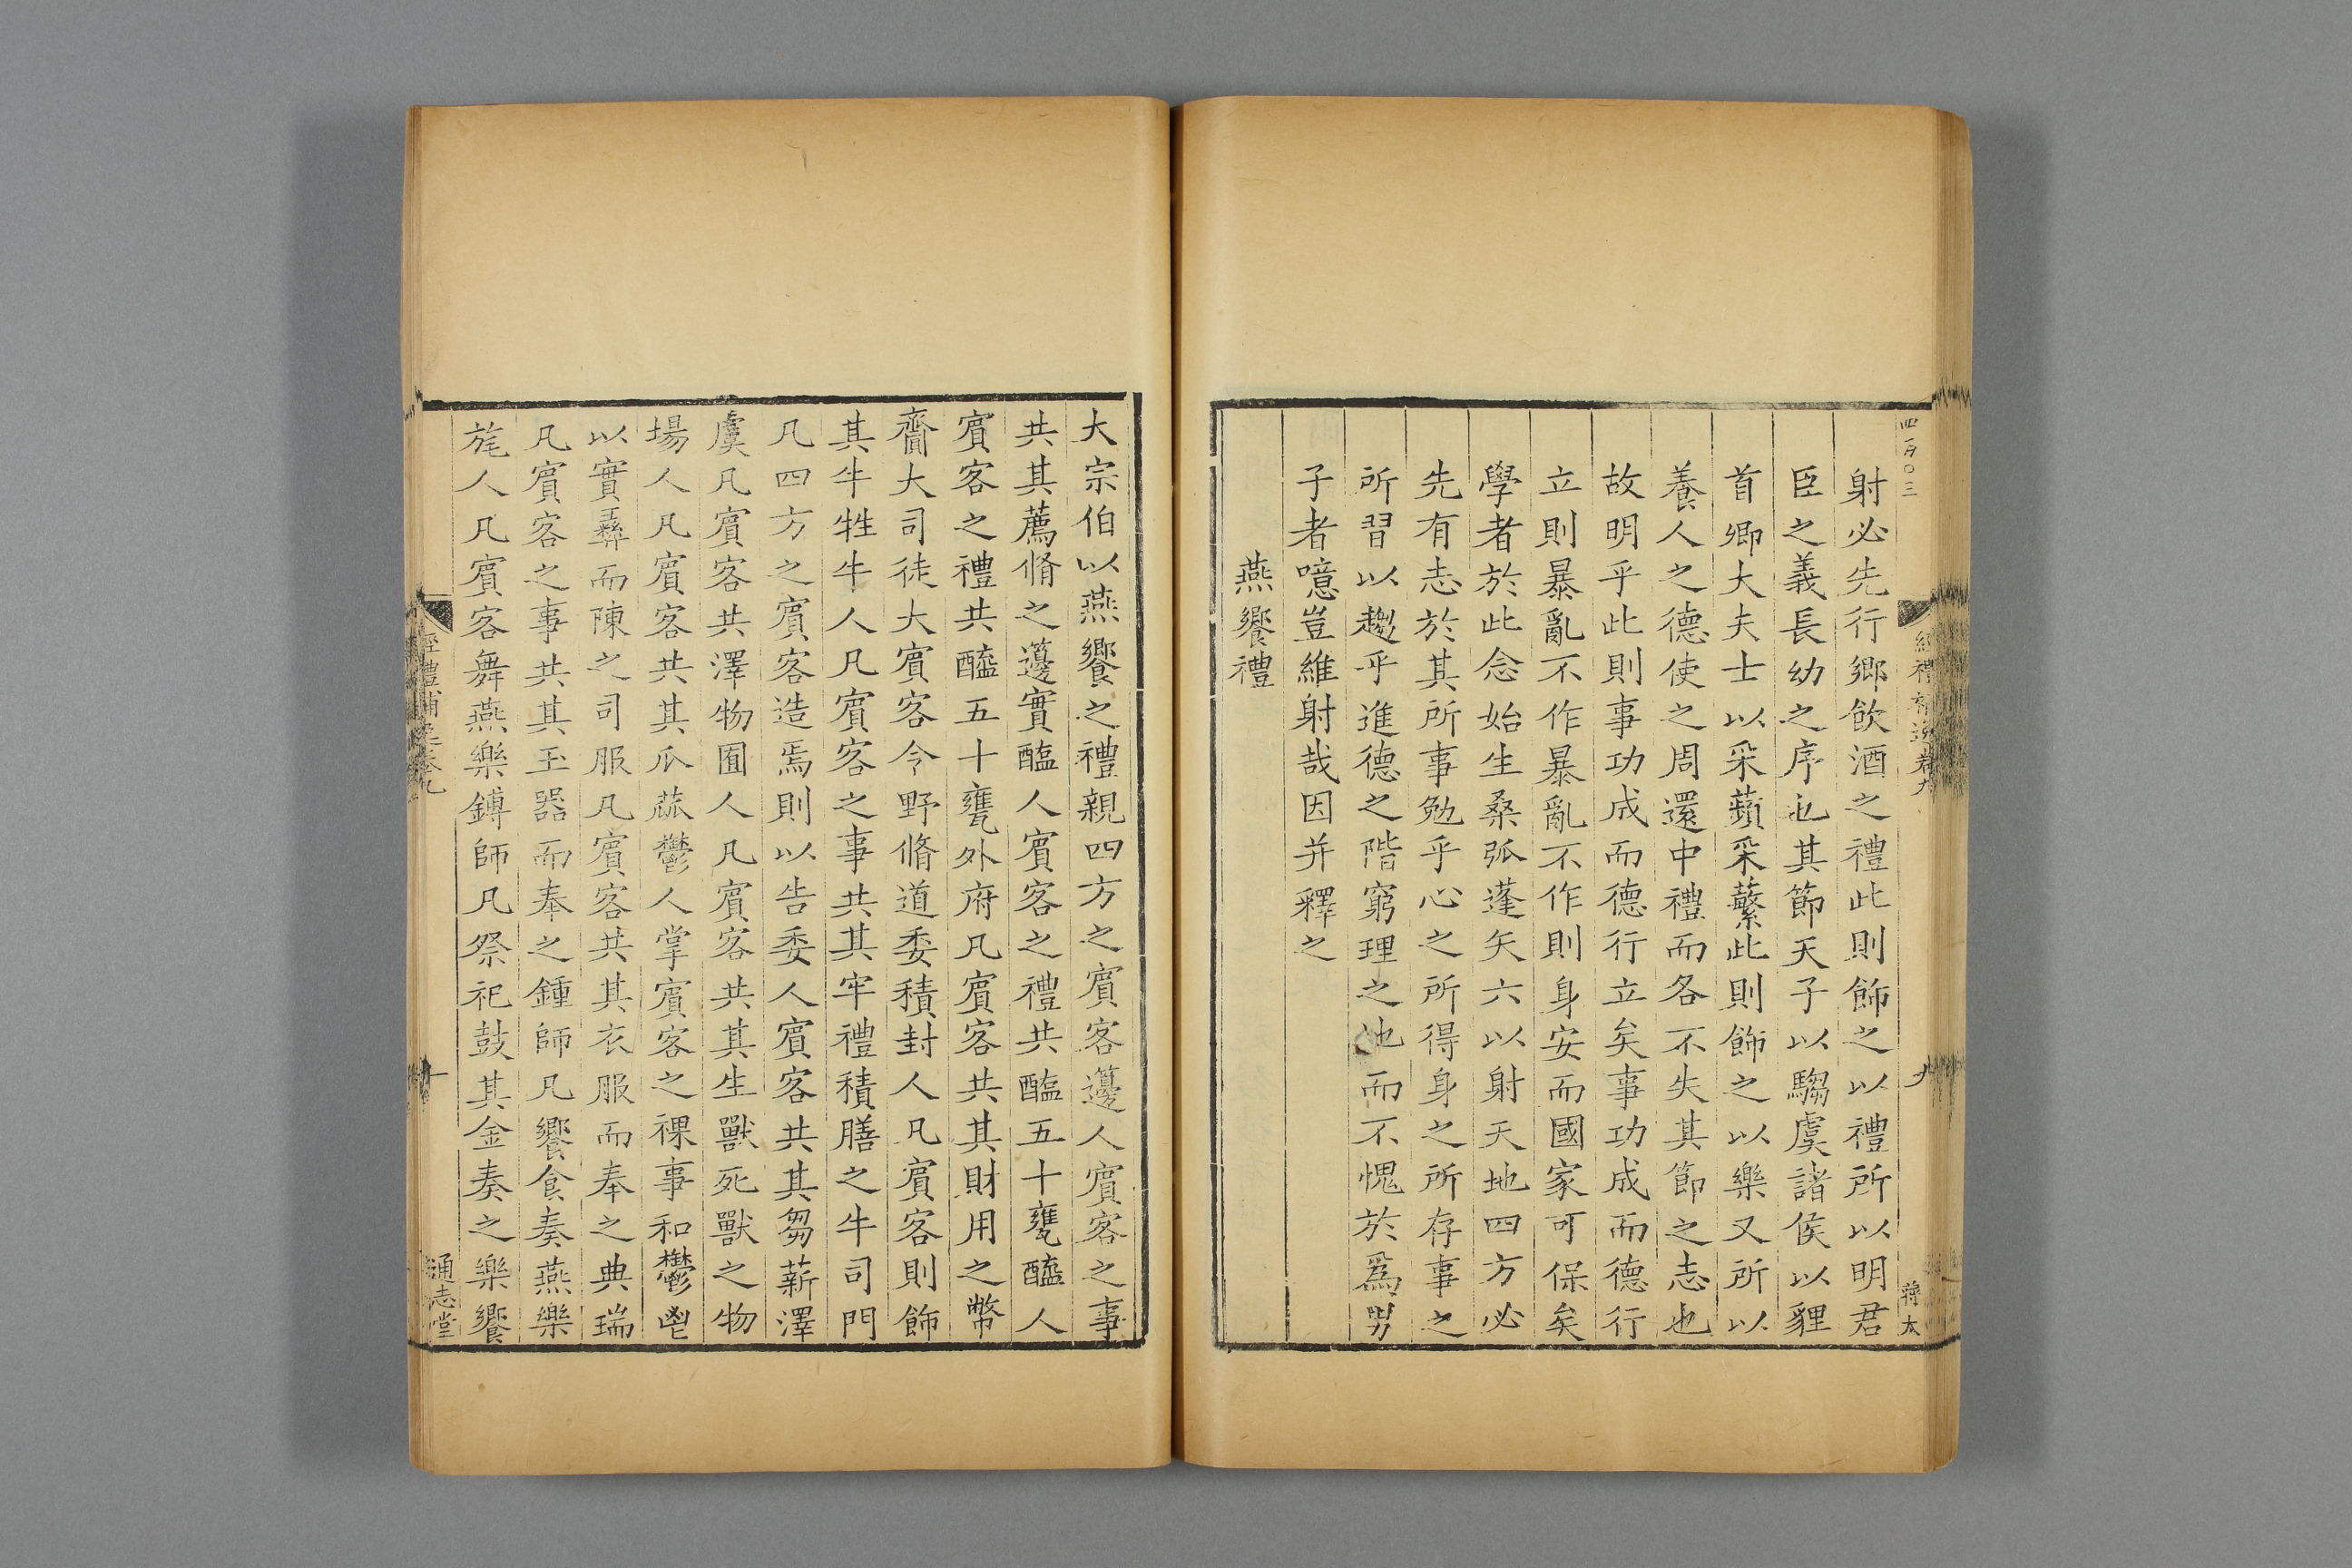 射必先行鄉飲酒之禮此則飾之以禮所以明君
臣之義長幼之序也其節天子以騶虞諸侯以貍
首卿大夫士以采蘋采蘩此則飾之以樂又所以
養人之德使之周還中禮而各不失其節之志也
故明乎此則事功成而德行立矣事功成而德行
立則暴亂不作暴亂不作則身安而國家可保矣
學者於此念始生桑弧蓬矢六以射天地四方必
先有志於其所事勉乎心之所得身之所存事之
所習以趨乎進德之階窮理之地而不愧於爲男
子者噫豈維射哉因并釋之
燕饗禮
大宗伯以燕饗之禮親四方之賓客籩人賓客之事
共其薦脩之籩實醢人賓客之禮共醢五十甕醯人
賓客之禮共醯五十甕外府凡賓客共其財用之幣
齎大司徒大賓客令野脩道委積封人凡賓客則飾
其牛牲牛人凡賓客之事共其牢禮積膳之牛司門
凡四方之賓客造焉則以告委人賓客共其芻薪澤
虞凡賓客共澤物囿人凡賓客共其生獸死獸之物
場人凡賓客共其瓜蓏鬱人掌賓客之祼事和鬱鬯
以實彝而陳之司服凡賓客共其衣服而奉之典瑞
凡賓客之事共其玉器而奉之鍾師凡饗食奏燕樂
旄人凡賓客舞燕樂鎛師凡祭祀鼓其金奏之樂饗
經禮補逸卷九
十
通志堂